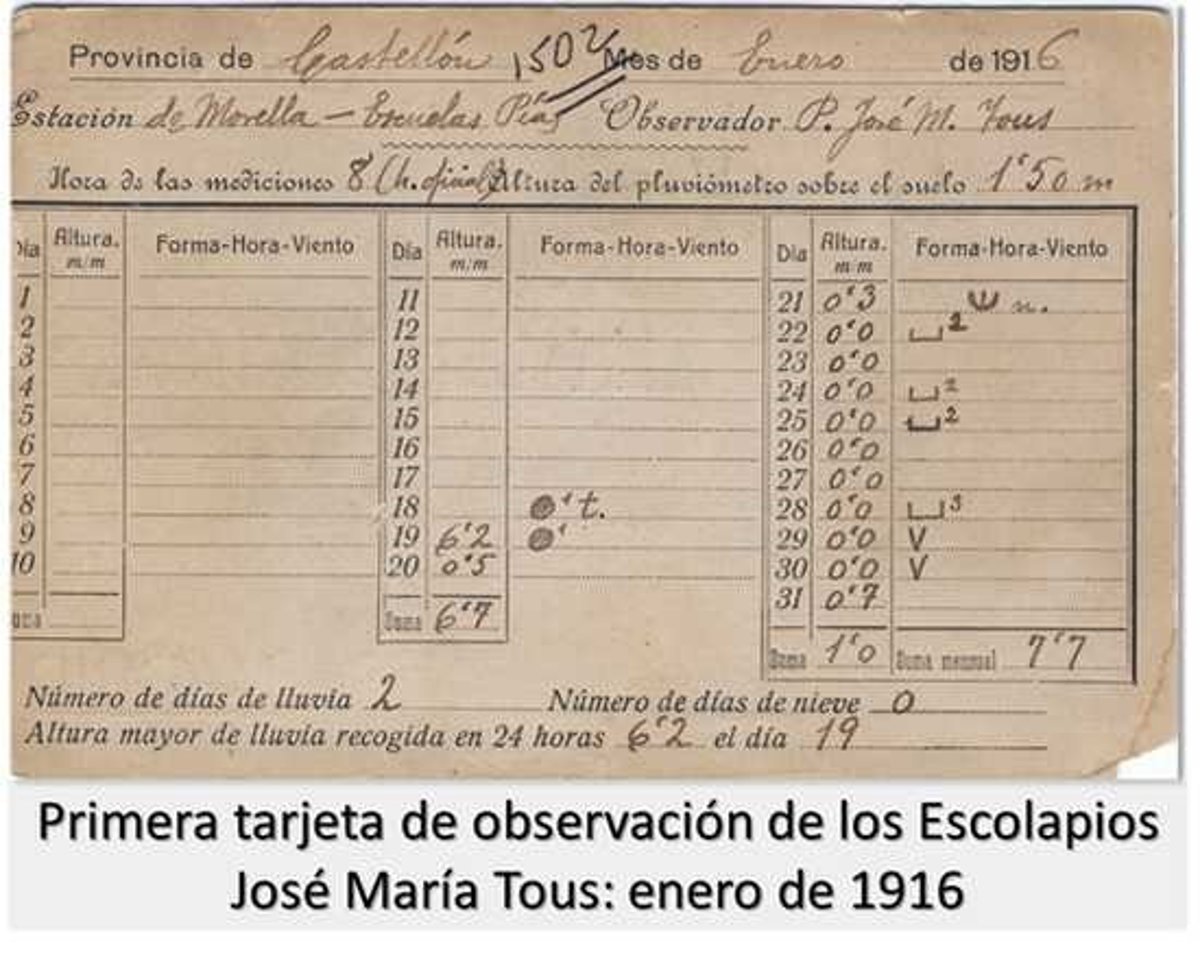 Provincia de Castellón 1502 Mes de Enero de 1916
Estación de Morella - Escuelas Pías Observador P. José M. Tous
Hora de las mediciones 8 (h. oficial) Altura del pluviómetro sobre el suelo 1'50 m
Día Altura. m/m Forma-Hora-Viento Día Altura. m/m Forma-Hora-Viento Día Altura. m/m Forma-Hora-Viento
1 11 21 0'3 n.
2 12 22 0'0 ⎵2
3 13 23 0'0
4 14 24 0'0 ⎵2
5 15 25 0'0 ⎵2
6 16 26 0'0
7 17 27 0'0
8 18 ●' t. 28 0'0 ⎵3
9 19 6'2 ●' 29 0'0 V
10 20 0'5 30 0'0 V
31 0'7
Suma Suma 6'7 Suma 1'0 Suma mensual 7'7
Número de días de lluvia 2 Número de días de nieve 0
Altura mayor de lluvia recogida en 24 horas 6'2 el día 19
Primera tarjeta de observación de los Escolapios
José María Tous: enero de 1916